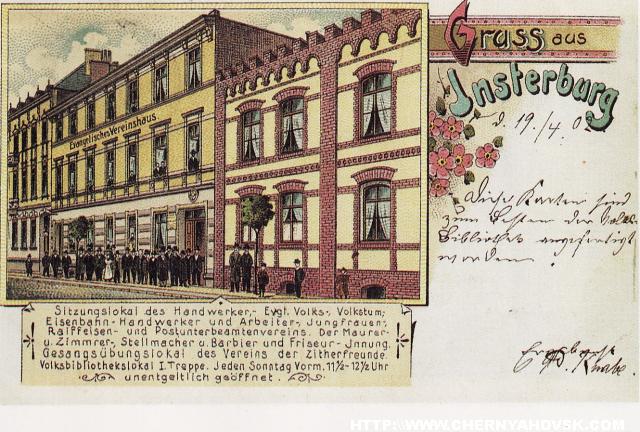 Gruss aus
Insterburg
d. 19/4. 0
Diese Karten sind
zum Besten der
Bibliothek angefertigt
worden.
Evangelisches Vereinshaus
Sitzungslokal des Handwerker,- Evgl. Volks-, Volkstum,
Eisenbahn-Handwerker und Arbeiter-, Jungfrauen-,
Raiffeisen- und Postunterbeamtenvereins. Der Maurer-
u. Zimmrer-, Stellmacher u. Barbier und Friseur-Jnnung.
Gesangsübungslokal des Vereins der Zitherfreunde.
Volksbibliothekslokal I. Treppe. Jeden Sonntag Vorm. 11½-12½ Uhr
unentgeltlich geöffnet.
HTTP://WWW.CHERNYAHOVSK.COM